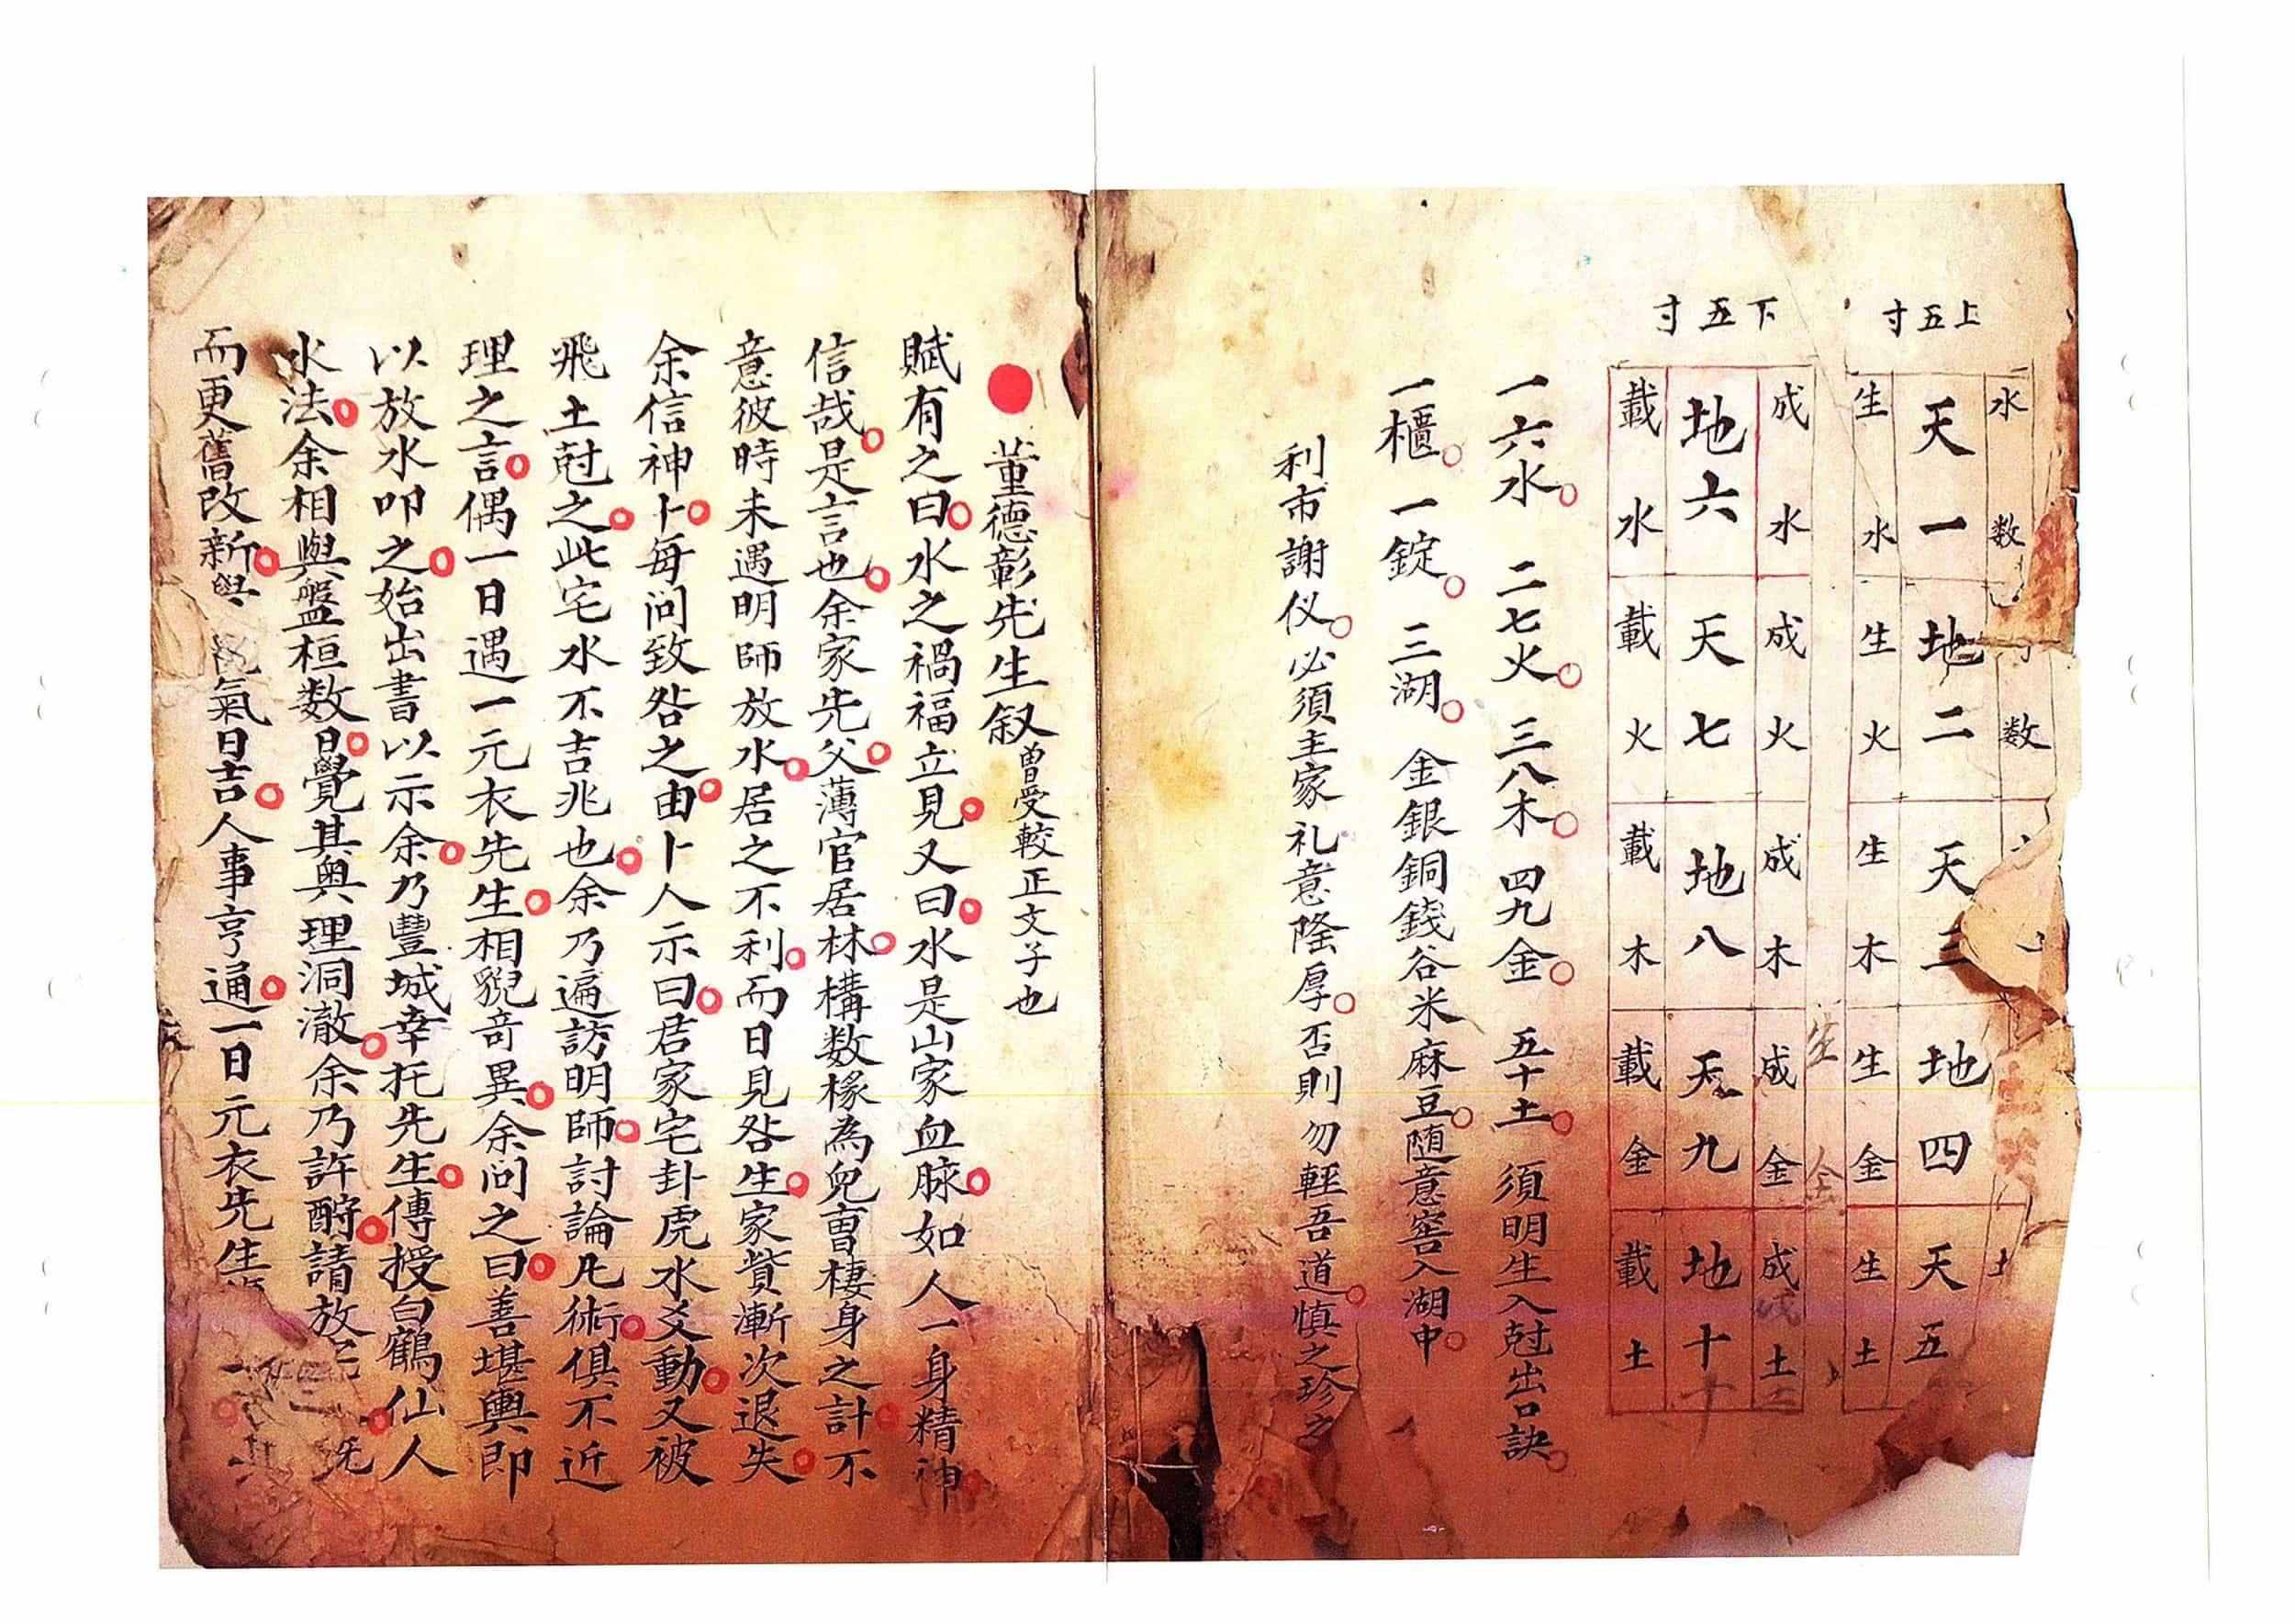 上五寸
水数
数
土
天一
地二
天三
地四
天五
生水
生火
生木
生金
生土
生金
下五寸
成水
成火
成木
成金
成土
地六
天七
地八
天九
地十
載水
載火
載木
載金
載土
一六水。二七火。三八木。四九金。五十土。須明生入尅出口訣。
一櫃。一錠。三湖。金銀銅錢谷米麻豆。随意窖入湖中。
利市謝仪。必須主家礼意隆厚。否則勿輕吾道。慎之珍之
董德彰先生叙曽受較正文子也
賦有之曰。水之禍福立見。又曰。水是山家血脉。如人一身精神。
信哉。是言也。余家先父。薄官居林。構数椽為兒曺棲身之計。不
意彼時未遇明師放水。居之不利。而日見咎生。家貲漸次退失。
余信神卜。每问致咎之由。卜人示曰。君家宅卦虎水爻動。又被
飛土尅之。此宅水不吉兆也。余乃遍訪明師。討論凡術。俱不近
理之言。偶一日遇一元衣先生。相貎竒異。余问之曰。善堪輿即
以放水叩之。始出書以示余。乃豐城幸托先生。傳授白鶴仙人
水法。余相與盤桓数日。覺其奥理洞澈。余乃許酧。請放
而更舊改新。氣日吉。人事亨通。一日元衣先生